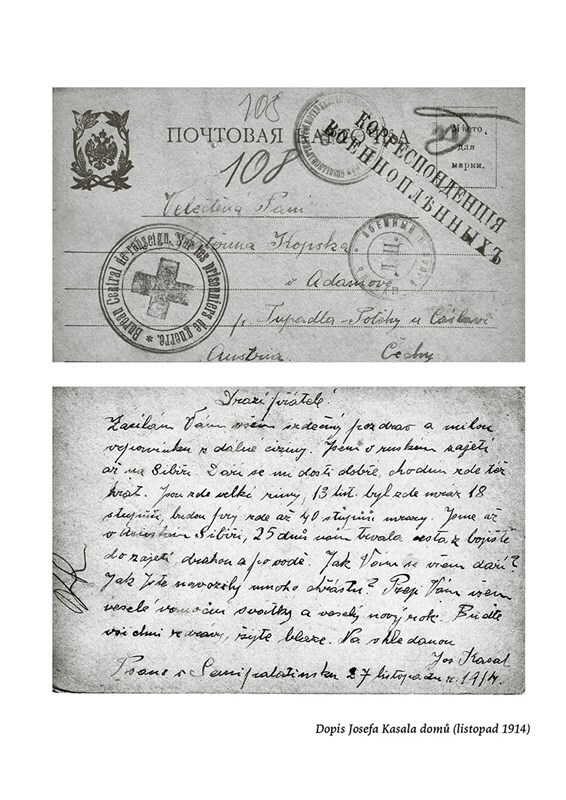 108
ПОЧТОВАЯ КАРТОЧКА
Мѣсто
для
марки.
КОРРЕСПОНДЕНЦІЯ
ВОЕННОПЛѢННЫХЪ
108
Velectěná Paní
Kopska
v Adamově
p. Tupadla - Potěhy u Čáslavi
Austria. Čechy
Bureau Central de renseign. Sur les prisonniers de guerre.
Drazí přátelé
Zasílám Vám všem srdečný pozdrav a milou
vzpomínku z dálné ciziny. Jsem v ruském zajetí
až na Sibiři. Daří se mi dosti dobře, chodím zde též
hrát. Jsou zde velké zimy, 13 list. byl zde mráz 18
stupňů, budou prý zde až 40 stupňů mrazy. Jsme až
v Sibiři, 25 dnů nám trvala cesta z bojiště
do zajetí drahou a po vodě. Jak Vám se všem daří?
Jak jste navozily mnoho chrástu? Přeji Vám všem
veselé vánoční svátky a veselý nový rok. Buďte
všichni zdrávy, žijte blaze. Na shledanou
Jos Kasal
Psáno v Semipalatinsku 27 listopadu r. 1914.
Dopis Josefa Kasala domů (listopad 1914)